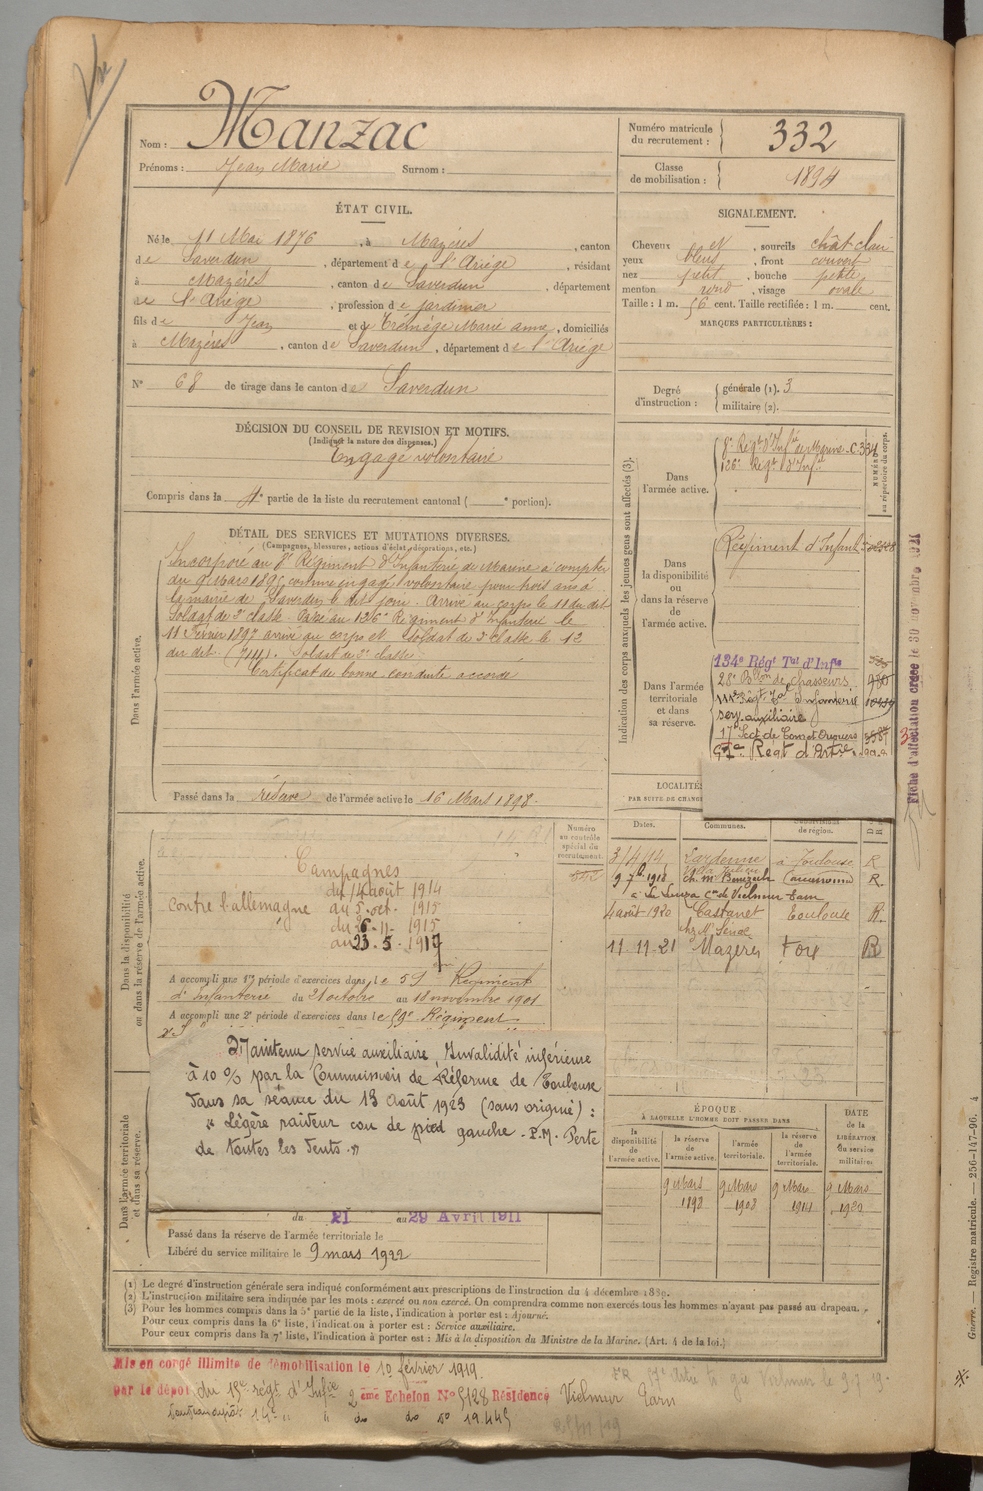 Nom : Manzac
Prénoms : Jean Marie Surnom :
Numéro matricule du recrutement : 332
Classe de mobilisation : 1894
ÉTAT CIVIL.
Né le 11 Mai 1876, à Mazères, canton
de Saverdun, département de l'Ariège, résidant
à Mazères, canton de Saverdun, département
de l'Ariège, profession de jardinier
fils de Jean et de Trémège Marie anne, domiciliés
à Mazères, canton de Saverdun, département de l'Ariège
N° 68 de tirage dans le canton de Saverdun
SIGNALEMENT.
Cheveux et sourcils chât clair
yeux bleus, front couvert
nez petit, bouche petite
menton rond, visage ovale
Taille : 1 m. 56 cent. Taille rectifiée : 1 m. cent.
MARQUES PARTICULIÈRES :
Degré d'instruction : générale (1). 3
militaire (2).
DÉCISION DU CONSEIL DE REVISION ET MOTIFS.
(Indiquer la nature des dispenses.)
Engagé volontaire
Compris dans la 4e partie de la liste du recrutement cantonal ( e portion).
DÉTAIL DES SERVICES ET MUTATIONS DIVERSES.
(Campagnes, blessures, actions d'éclat, décorations, etc.)
Dans l'armée active.
Incorporé au 8e Régiment d'Infanterie de Marine à compter
du 9 Mars 1895 comme engagé volontaire pour trois ans à
la mairie de Saverdun le dit jour. Arrivé au corps le 11 du dit
Soldat de 2e classe. Passé au 126e Régiment d'Infanterie le
11 Février 1897 arrivé au corps et soldat de 2e classe le 12
du dit. Soldat de 2e classe
Certificat de bonne conduite accordé
Passé dans la réserve de l'armée active le 16 Mars 1898.
Indication des corps auxquels les jeunes gens sont affectés (3).
NUMÉRO au répertoire du corps.
Dans l'armée active.
8e Régt d'Infie de Marine. C. 334
126e Régt d'Infie
Dans la disponibilité ou dans la réserve de l'armée active.
Régiment d'Infant
Dans l'armée territoriale et dans sa réserve.
134e Régt Tal d'Infie
28e Bllon de chasseurs
Régt Tal d'Infanterie
serv. auxiliaire
17e Sect de Com et Ouvriers
Regt d'Artie
Fiche d'affectation créée le 30 novembre 1921
LOCALITÉS
PAR SUITE DE CHANG
Dates. Communes. Subdivisions de région.
3/4/14 Lardenne à Toulouse R
9 7bre 1918 ch. M. Carcassonne R.
à La Cne de Vielmur Tarn
4 août 1920 Castanet Toulouse R.
11-11-21 Mazeres Foix R
Dans la disponibilité ou dans la réserve de l'armée active.
Numéro au contrôle spécial du recrutement.
Campagnes
contre l'allemagne du 14 août 1914
au 5. oct. 1915
du 26-11- 1915
au 23. 5. 1917
A accompli une 1re période d'exercices dans le 59e Régiment
d'Infanterie du 21 octobre au 18 novembre 1901
A accompli une 2e période d'exercices dans le 59e Régiment
Maintenu service auxiliaire, Invalidité inférieure
à 10 % par la Commission de Réforme de Toulouse
dans sa séance du 13 août 1923 (sans origine) :
" Légère raideur cou de pied gauche. P.M. Perte
de toutes les dents."
Dans l'armée territoriale et dans sa réserve.
du 21 au 29 Avril 1911
Passé dans la réserve de l'armée territoriale le
Libéré du service militaire le 9 mars 1922
ÉPOQUE
À LAQUELLE L'HOMME DOIT PASSER DANS
DATE de la LIBÉRATION du service militaire
la disponibilité de l'armée active. la réserve de l'armée active. l'armée territoriale. la réserve de l'armée territoriale.
9 Mars 1898 9 Mars 1908 9 Mars 1914 9 Mars 1920
(1) Le degré d'instruction générale sera indiqué conformément aux prescriptions de l'instruction du 4 décembre 1889.
(2) L'instruction militaire sera indiquée par les mots : exercé ou non exercé. On comprendra comme non exercés tous les hommes n'ayant pas passé au drapeau.
(3) Pour les hommes compris dans la 5e partie de la liste, l'indication à porter est : Ajourné.
Pour ceux compris dans la 6e liste, l'indication à porter est : Service auxiliaire.
Pour ceux compris dans la 7e liste, l'indication à porter est : Mis à la disposition du Ministre de la Marine. (Art. 4 de la loi.)
Mis en congé illimité de démobilisation le 10 février 1919
par le dépôt du 15e régt d'Infie 2ème Echelon N° 5128 Résidence Vielmur Tarn
14e " " do do No 19.445
Guerre. — Registre matricule. — 256-147-96. 4